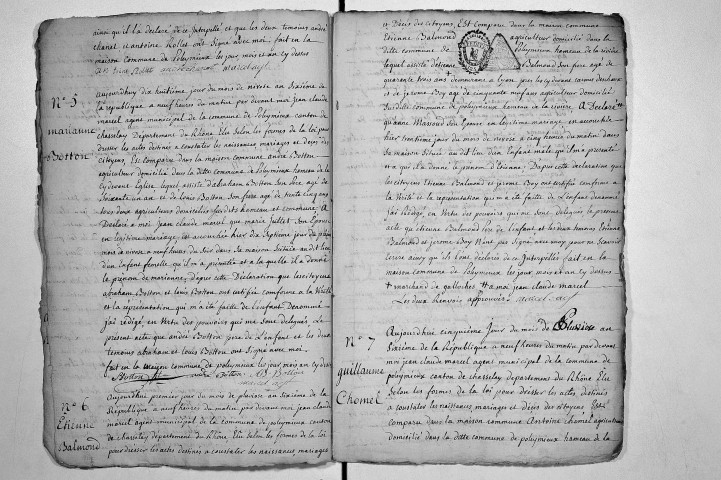 ainsi qu'il l'a declaré de ce Interpellé et que les deux temoins andré
chanel et antoine Rollet ont Signé avec moi. fait en la
maison Commune de polymieux les jour mois et an cy dessus
N° 5
marianne
Botton
aujourdhuy dix huitieme jour du mois de nivose an Sixieme de la
République a neuf heures du matin par devant moi jean claude
marcel agent municipal de la Commune de polymieux canton de
chasselay Département du Rhône Elu Selon les formes de la loi pour
dresser les actes destinés a constater les naissances mariages et décès des
citoyens, Est Comparu dans la maison Commune andré Botton
agriculteur domicilié dans la ditte Commune de polymieux hameau de la
cydevant Eglise, lequel assisté d'abraham Botton Son père agé de
Soixante un ans et de Louis Botton Son frere agé de trente cinq ans
tous deux agriculteurs domiciliés susdits hameau et Commune. A
Déclaré a moi jean claude marcel, que marie jullet Son Epouse
en légitime mariage, est accouchée hier dix Septieme jour du présent
mois de nivose a neuf heures du Soir dans Sa maison Scituée audit lieu
d'un Enfant femelle qu'il m'a présenté et a la quelle il a donné
le prénom de marianne, d'après cette Déclaration que les citoyens
abraham Botton et louis Botton ont certifiée conforme a la Vérité
et la représentation qui m'a été faitte de l'enfant Dénommé
j'ai rédigé en Vertu des pouvoirs qui me Sont délégués Le
présent acte que andré Botton père de l'enfant et les deux
temoins abraham et louis Botton ont Signé avec moi.
fait en la maison commune de polymieux les jour mois an cy dessus
Botton andré Botton Botton
marcel agt
N° 6
Etienne
Balmond
Aujourdhuy premier jour du mois de pluviose an Sixieme de la
République a neuf heures du matin par devant moi jean claude
marcel agent municipal de la Commune de polymieux canton
de chasselay département du Rhône Elu Selon les formes de la loi
pour dresser les actes destinés a constater les naissances mariages
et Décès des citoyens, Est Comparu dans la maison commune
Etienne Balmond agriculteur domicilié dans la
ditte commune de polymieux hameau de la rivière
lequel assisté d'étienne Balmond Son père agé de
quarante trois ans demeurant a lyon
et de jerome Boy agé de cinquante neuf ans agriculteur domicilié
Susditte commune de polymieux hameau de la riviere. A Déclaré
qu'anne Massoud Son Epouse en légitime mariage, est accouchée
hier trentieme jour du mois de nivose a cinq heures du matin dans
Sa maison Scituée audit lieu d'un Enfant male qu'il m'a présenté
et a qui il a donné le prénom d'Etienne. D'après cette déclaration que
les citoyens Etienne Balmond et jerome Boy ont certifié conforme a
la Vérité et la représentation qui m'a été faitte de l'enfant dénommé
jai rédigé, en Vertu des pouvoirs qui me Sont délégués le présent
acte qu'étienne Balmond père de l'enfant et les deux temoins Etienne
Balmond et jerome Boy N'ont pas Signé avec moy pour ne Scavoir
Ecrire ainsy qu'ils l'ont déclaré de ce Interpellés fait en la
maison commune de polymieux les jour mois et an cy dessus
+ marchand a galloches ++ a moi jean claude marcel
Les deux Renvois approuvés marcel agt
N° 7
guillaume
Chomel
Aujourdhui cinquieme jour du mois de Pluviose an
Sixième de la République a neuf heures du matin par devant
moi jean claude marcel agent municipal de la commune de
polymieux canton de chasselay département du Rhône Elu
Selon les formes de la loi pour dresser les actes destinés
a constater les naissances, mariages et décès des citoyens Est
comparu dans la maison commune Antoine Chomel agriculteur
domicilié dans la ditte commune de polymieux hameau de la